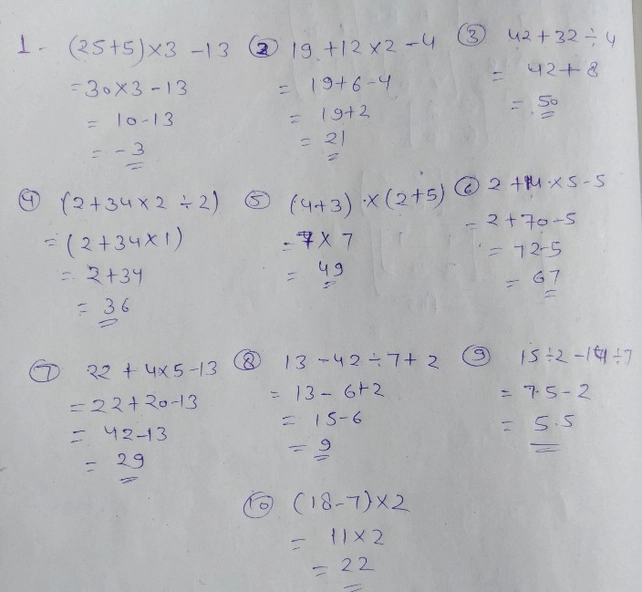 1- (25+5)×3 -13 ② 19 +12×2-4 ③ 42+32÷4
=30×3-13 = 19+6-4 = 42+8
= 10-13 = 19+2 = 50
= -3 = 21
④ (2+34×2÷2) ⑤ (4+3)×(2+5) ⑥ 2+14×5-5
=(2+34×1) =7×7 =2+70-5
= 2+34 = 49 = 72-5
= 36 = 67
⑦ 22+4×5-13 ⑧ 13-42÷7+2 ⑨ 15÷2-14÷7
=22+20-13 = 13-6+2 = 7.5-2
= 42-13 = 15-6 = 5.5
= 29 = 9
⑩ (18-7)×2
= 11×2
= 22